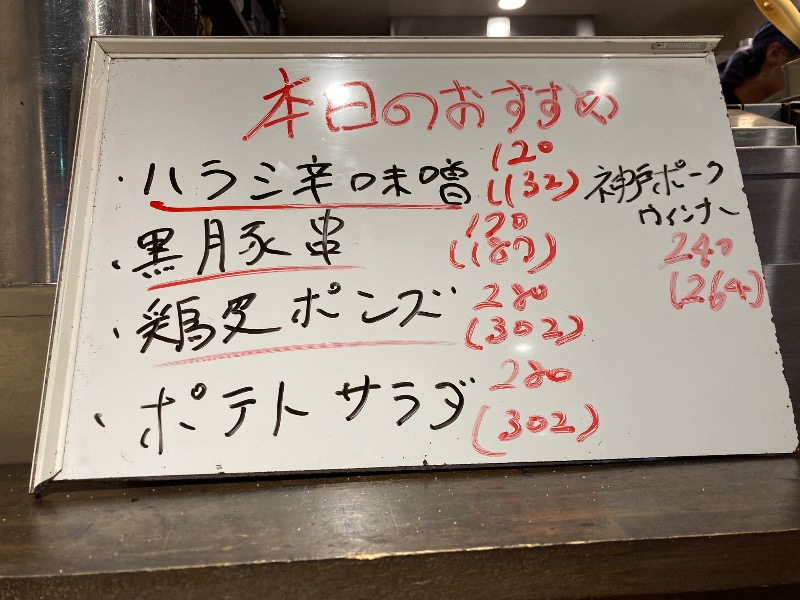 本日のおすすめ
・ハラミ辛味噌 120
(132)
・黒豚串 170
(187)
・鶏皮ポンズ 280
(302)
・ポテトサラダ 280
(302)
神戸ポーク
ウィンナー
240
(264)